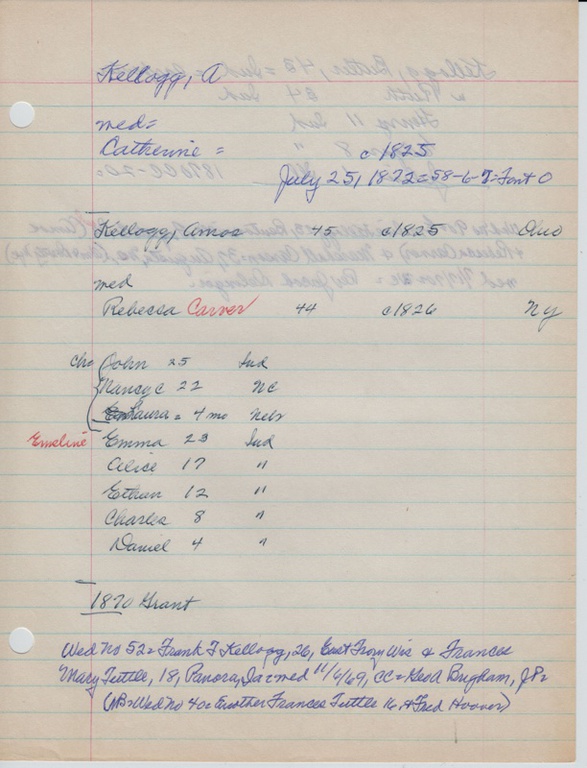 Kellogg, A
med=
Catherine = c1825
July 25, 1872=58-6-7=Font O
Kellogg, Amos 45 c1825 Ohio
med
Rebecca Carver 44 c1826 Ny
Chn John 25 Ind
Nancy C 22 NC
Laura = 4 mo Nebr
Emeline Emma 23 Ind
Alice 17 "
Ethan 12 "
Charles 8 "
Daniel 4 "
1870 Grant
Wed No 52= Frank F Kellogg, 26, East Troy Wis & Frances
Mary Tuttle, 18, Panora, Ia= med 11/6/69, CC= Geo A Brigham, JP=
(NB= Wed No 40= Another Frances Tuttle 16 & Fred Hoover)